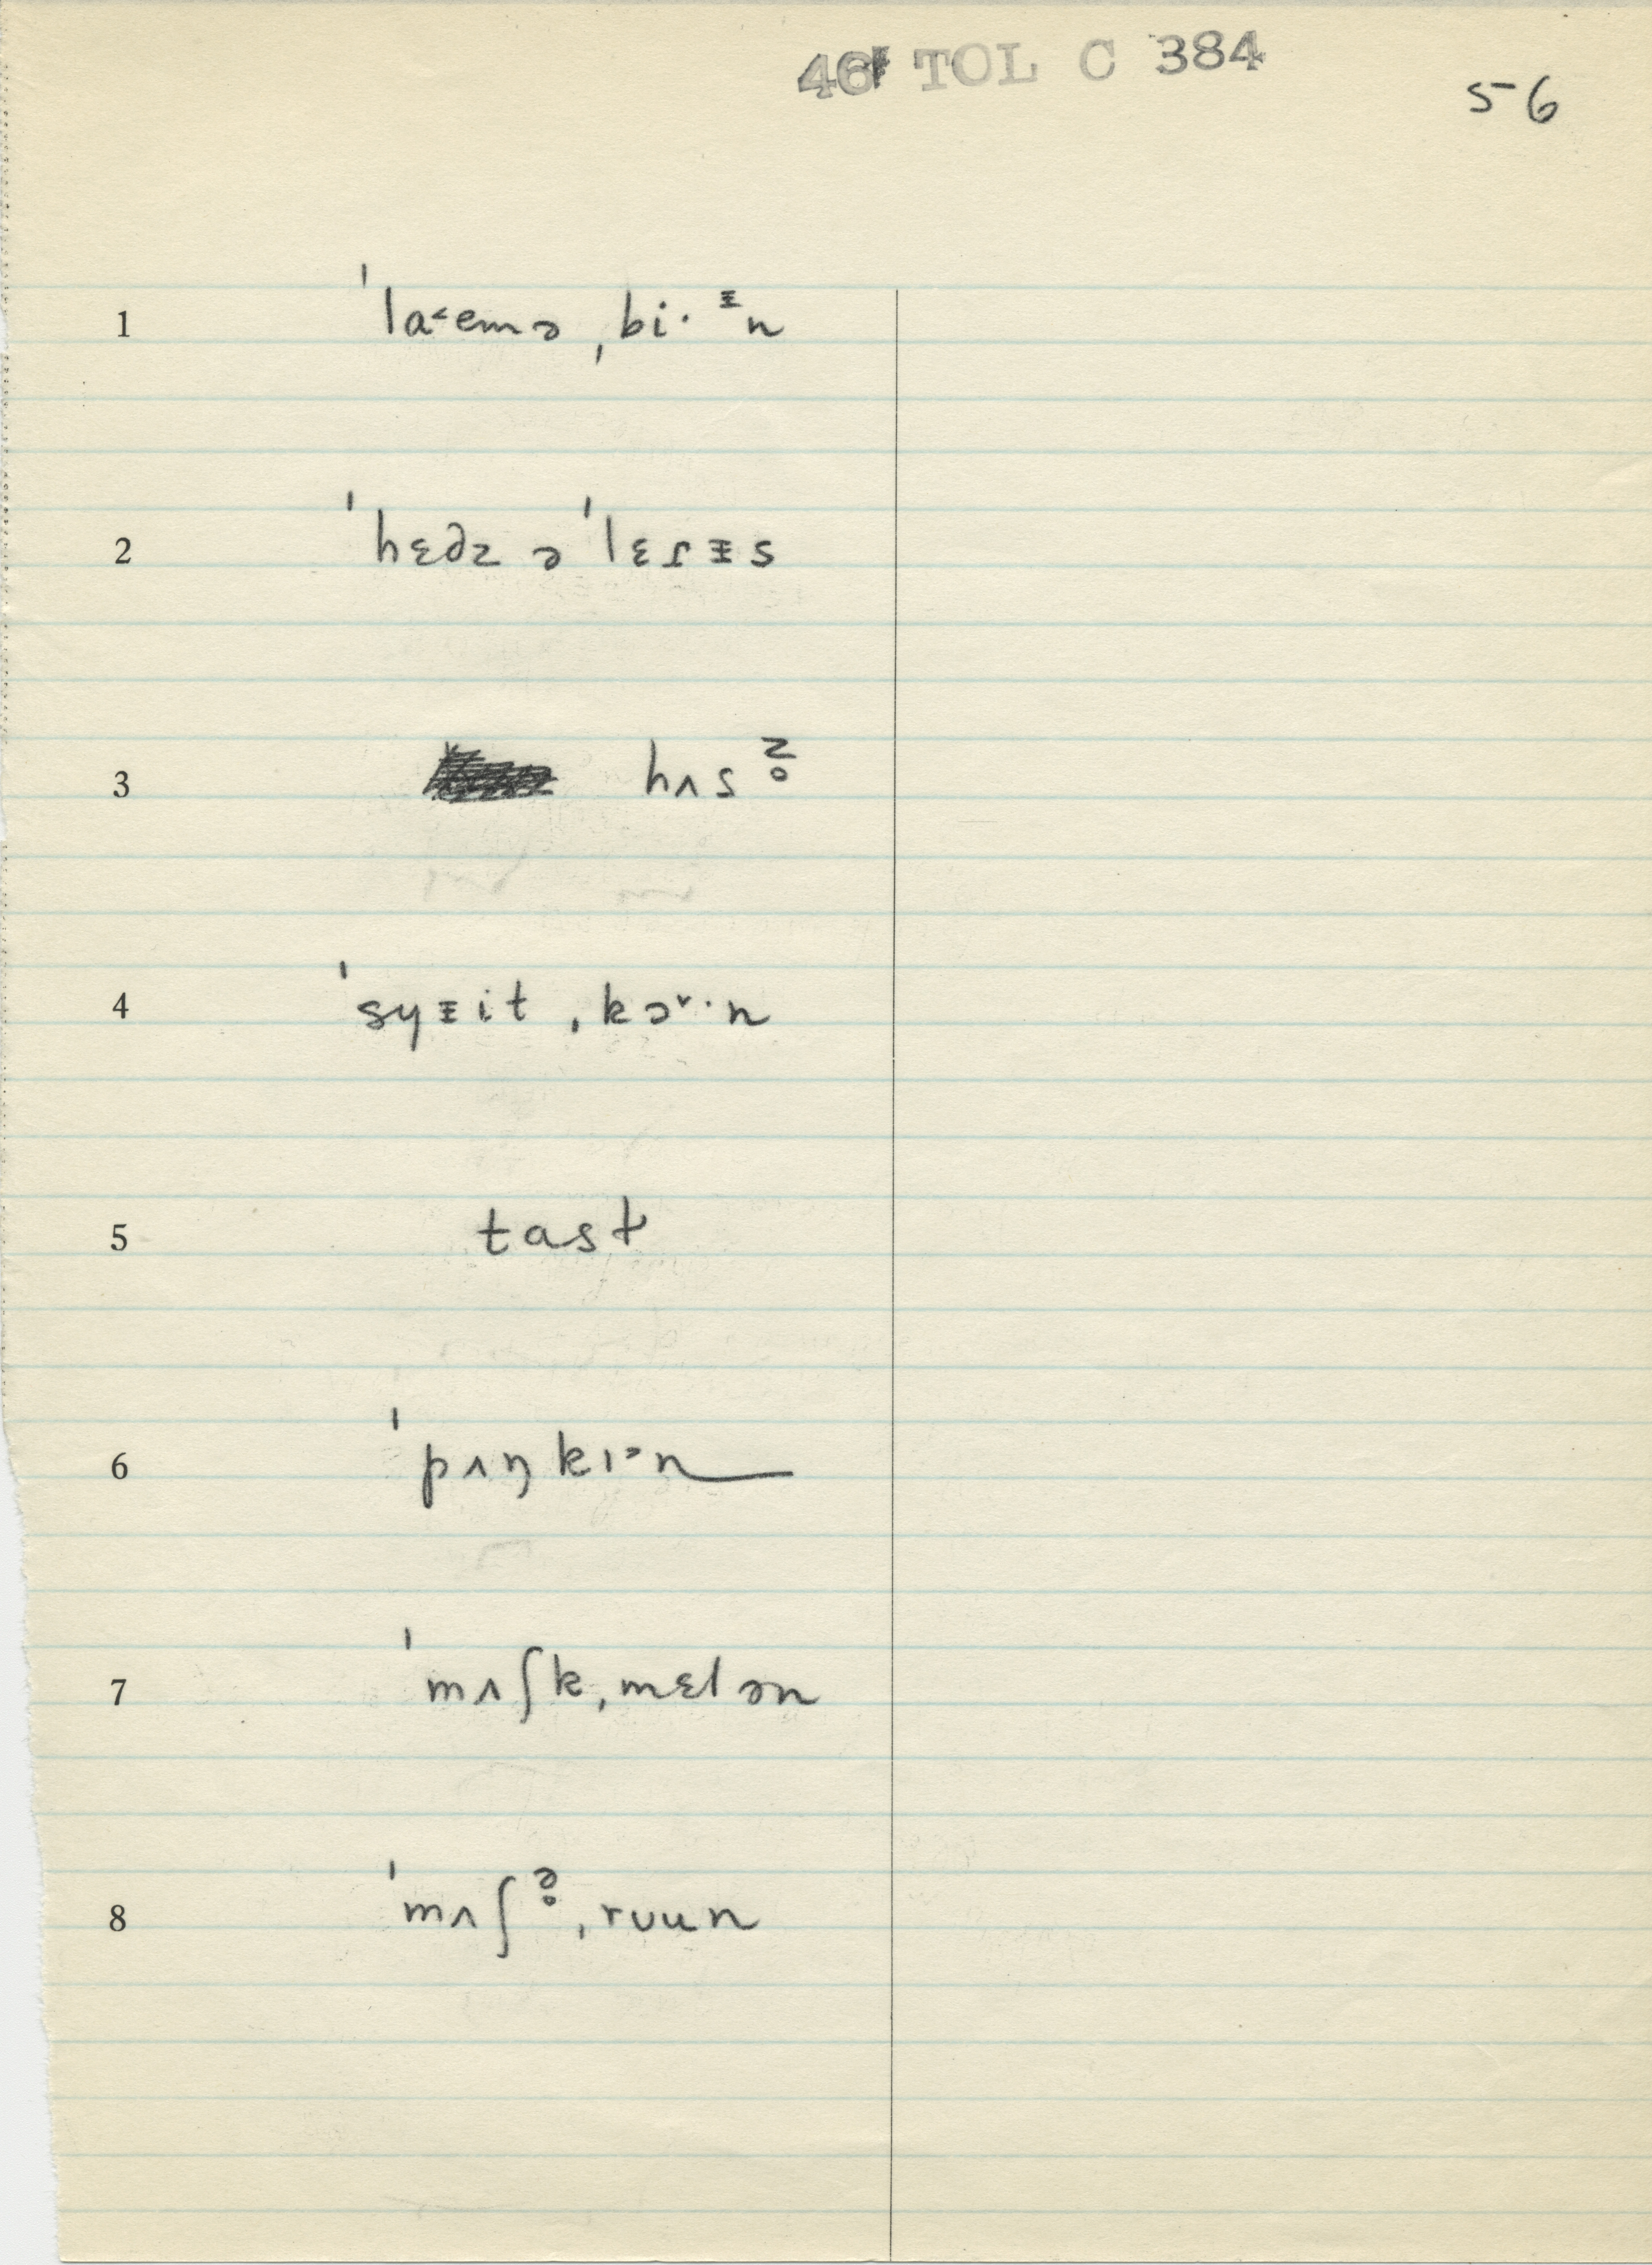 46 TOL C 384
56
1 ˈla˂emə ˌbi· ᵻn
2 ˈhɛdz ə ˈlɛɾᵻs
3 hʌs z̥
4 ˈsyᵻit ˌkɔ˅·n
5 tast
6 ˈpʌŋkɪᵊn
7 ˈmʌʃkˌmɛlən
8 ˈmʌʃə̥ˌrʊun